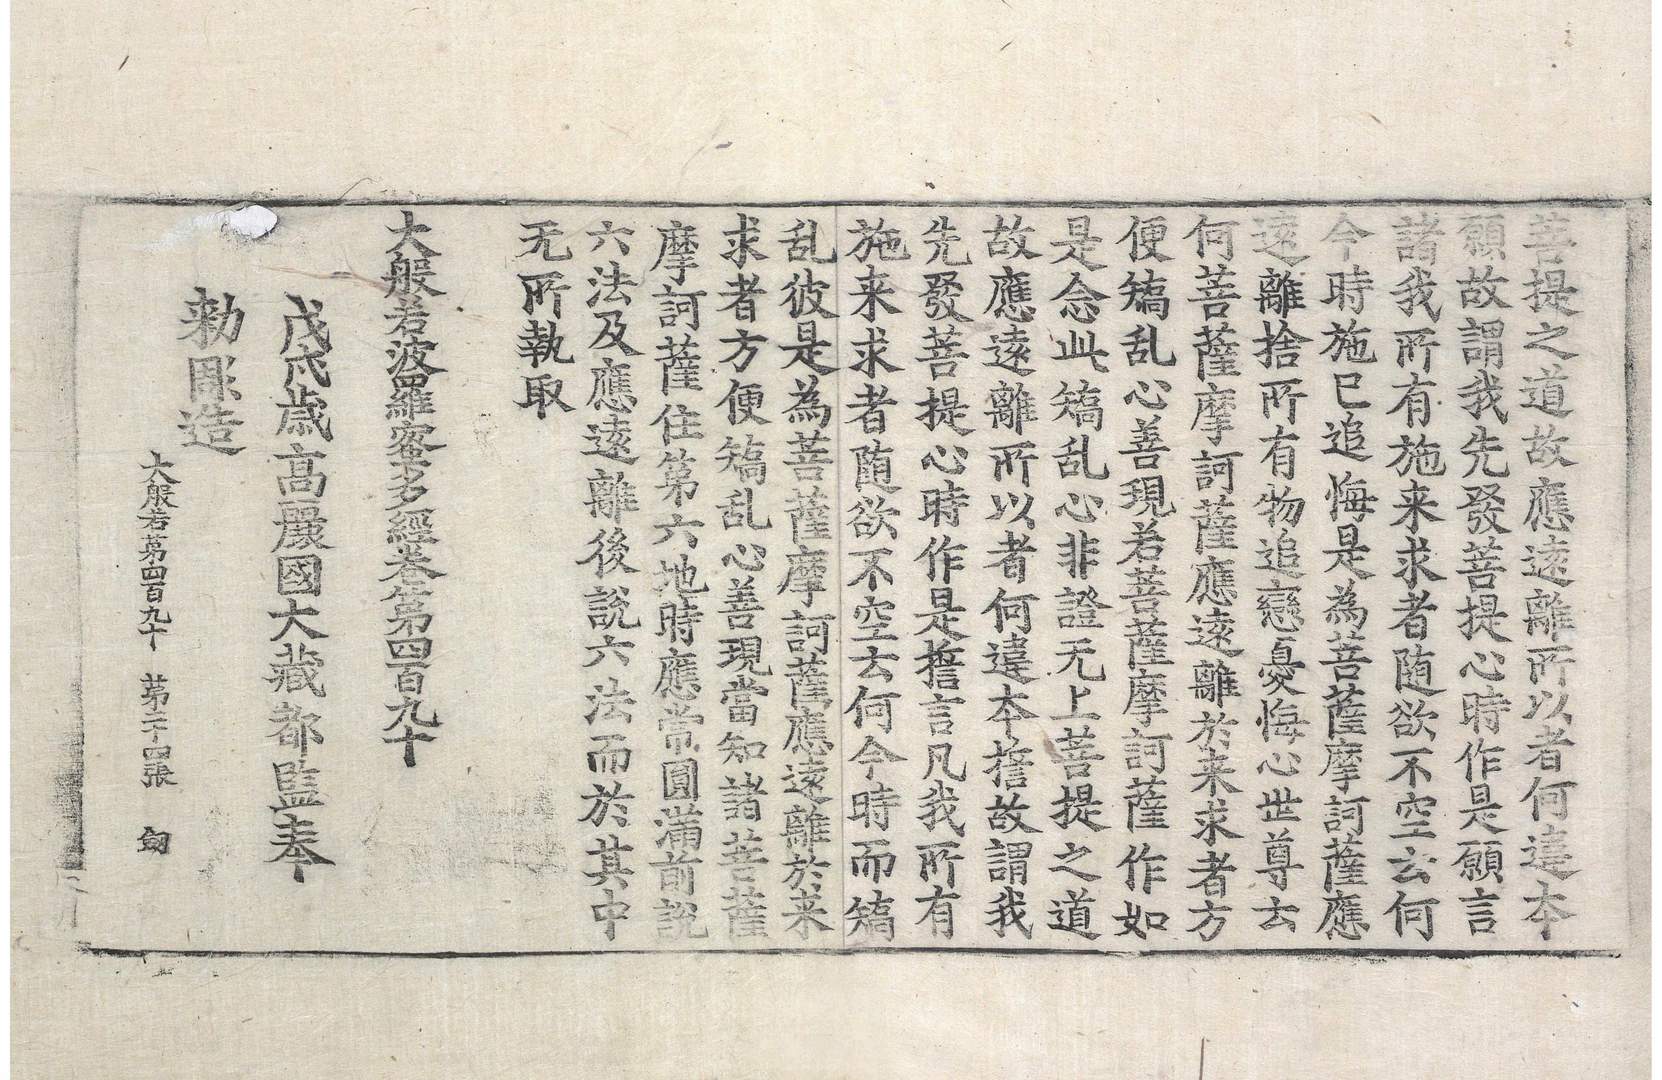 菩提之道故應遠離所以者何違本
願故謂我先發菩提心時作是願言
諸我所有施来求者随欲不空云何
今時施已追悔是為菩薩摩訶薩應
遠離捨所有物追戀憂悔心世尊云
何菩薩摩訶薩應遠離於来求者方
便矯乱心善現若菩薩摩訶薩作如
是念此矯乱心非證无上菩提之道
故應遠離所以者何違本誓故謂我
先發菩提心時作是誓言凡我所有
施来求者随欲不空云何今時而矯
乱彼是為菩薩摩訶薩應遠離於来
求者方便矯乱心善現當知諸菩薩
摩訶薩住第六地時應常圓滿前說
六法及應遠離後說六法而於其中
无所執取
大般若波羅蜜多經卷第四百九十
戊戌歲高麗國大藏都監奉
勅彫造
大般若第四百九十　第二十四張　劒